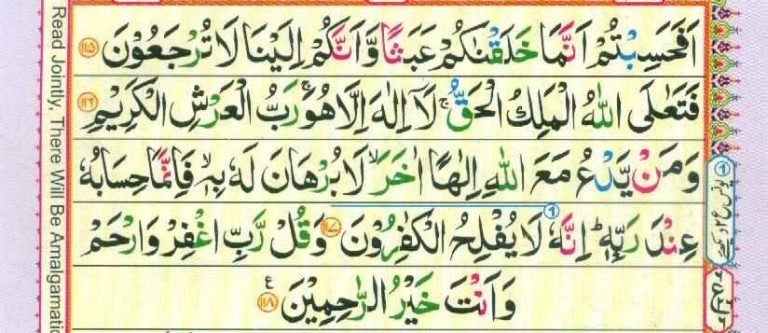 اَفَحَسِبْتُمْ اَنَّمَا خَلَقْنٰكُمْ عَبَثًا وَّاَنَّكُمْ اِلَيْنَا لَا تُرْجَعُوْنَ ۝۱۱۵
فَتَعٰلَى اللّٰهُ الْمَلِكُ الْحَقُّ ۚ لَاۤ اِلٰهَ اِلَّا هُوَ ۚ رَبُّ الْعَرْشِ الْكَرِيْمِ ۝۱۱۶
وَمَنْ يَّدْعُ مَعَ اللّٰهِ اِلٰهًا اٰخَرَ ۙ لَا بُرْهَانَ لَهٗ بِهٖ ۙ فَاِنَّمَا حِسَابُهٗ
عِنْدَ رَبِّهٖ ؕ اِنَّهٗ لَا يُفْلِحُ الْكٰفِرُوْنَ ۝۱۱۷ وَقُلْ رَّبِّ اغْفِرْ وَارْحَمْ
وَاَنْتَ خَيْرُ الرّٰحِمِيْنَ ۝۱۱۸
Read Jointly, There Will Be Amalgamati